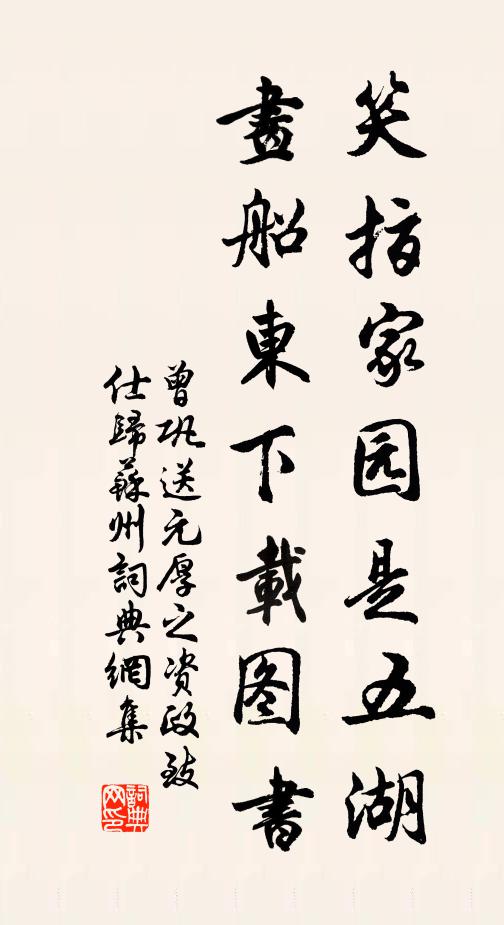 笑指家园是五湖
畫船東下載图書
曾巩送元厚之资政致
仕歸蘇州詞典網集
詞典网印